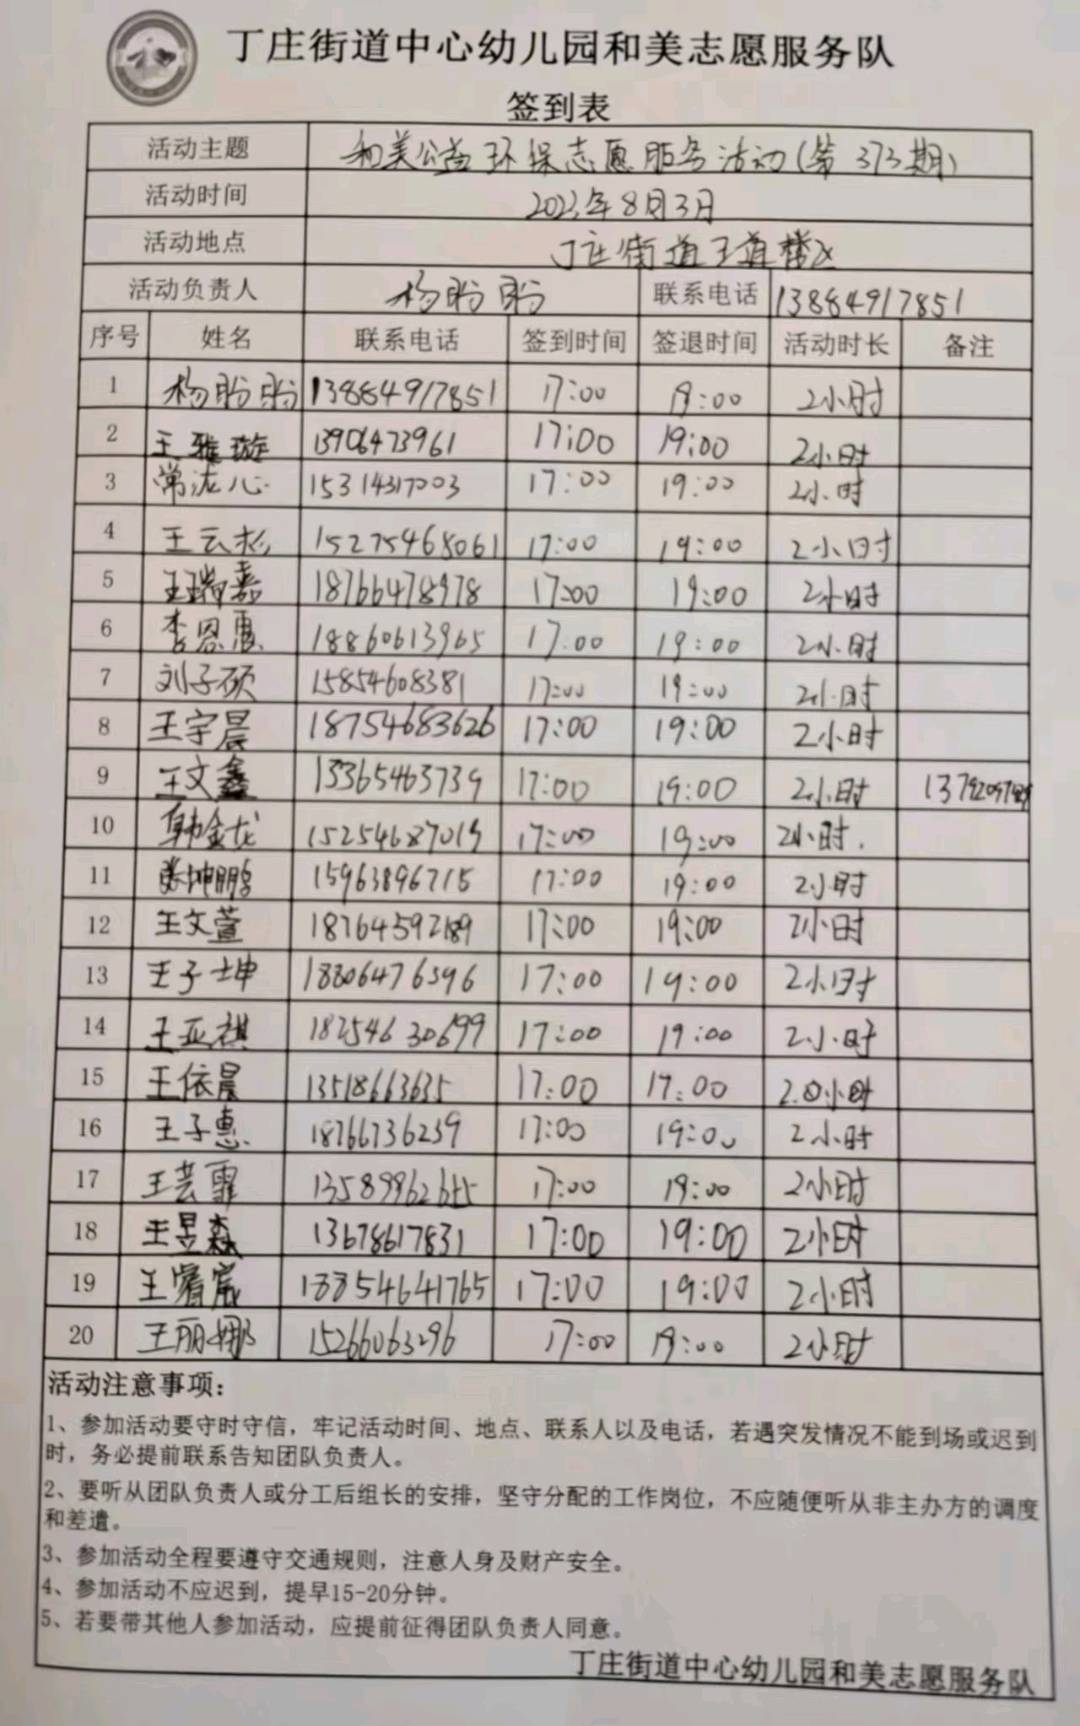 丁庄街道中心幼儿园和美志愿服务队
签到表
活动主题 和美公益环保志愿服务活动(第373期)
活动时间 2023年8月3日
活动地点 丁庄街道王道楼区
活动负责人 杨盼盼 联系电话 13884917851
序号 姓名 联系电话 签到时间 签退时间 活动时长 备注
1 杨盼盼 13884917851 17:00 19:00 2小时
2 王雅璇 13906473961 17:00 19:00 2小时
3 常泷心 15314317003 17:00 19:00 2小时
4 王云杉 15275468061 17:00 19:00 2小时
5 王瑞嘉 18766478978 17:00 19:00 2小时
6 李恩惠 18860613965 17:00 19:00 2小时
7 刘子硕 15854608381 17:00 19:00 2小时
8 王宇晨 18754683626 17:00 19:00 2小时
9 王文鑫 13365463739 17:00 19:00 2小时
10 韩金龙 15254687019 17:00 19:00 2小时.
11 张坤鹏 15963896715 17:00 19:00 2小时
12 王文萱 18764592189 17:00 19:00 2小时
13 王子坤 18806476596 17:00 19:00 2小时
14 王亚祺 18254630699 17:00 19:00 2小时
15 王依晨 13518663635 17:00 17:00 2.0小时
16 王子惠 18766736239 17:00 19:00 2小时
17 王芸霏 17:00 19:00 2小时
18 王昱森 13678617831 17:00 19:00 2小时
19 王睿宸 18854641765 17:00 19:00 2小时
20 王丽娜 15266063296 17:00 19:00 2小时
活动注意事项：
1、参加活动要守时守信，牢记活动时间、地点、联系人以及电话，若遇突发情况不能到场或迟到
时，务必提前联系告知团队负责人。
2、要听从团队负责人或分工后组长的安排，坚守分配的工作岗位，不应随便听从非主办方的调度
和差遣。
3、参加活动全程要遵守交通规则，注意人身及财产安全。
4、参加活动不应迟到，提早15-20分钟。
5、若要带其他人参加活动，应提前征得团队负责人同意。
丁庄街道中心幼儿园和美志愿服务队